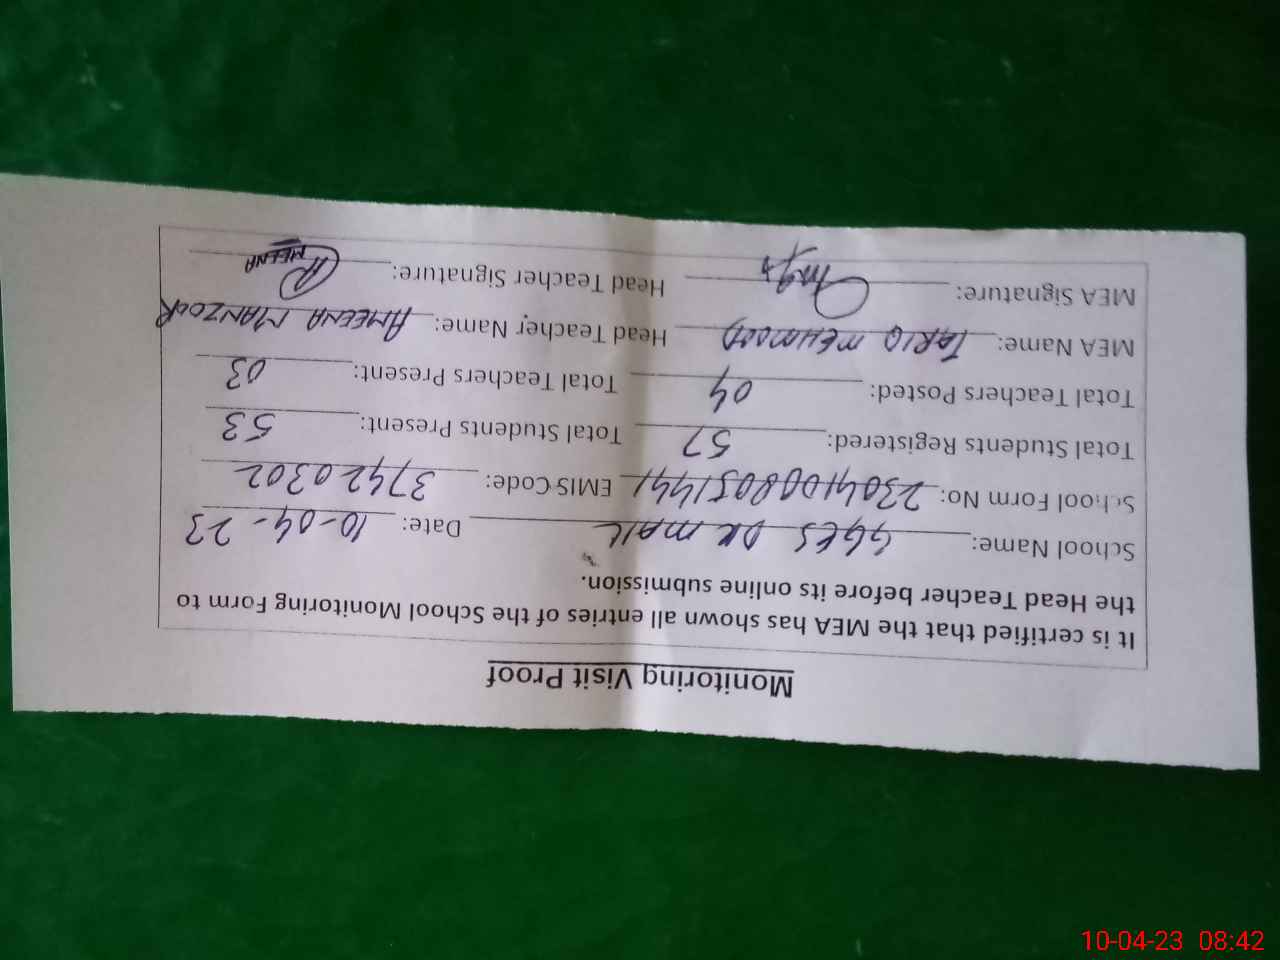 Monitoring Visit Proof
It is certified that the MEA has shown all entries of the School Monitoring Form to
the Head Teacher before its online submission.
School Name: GGES DK MAIL Date: 10-04-23
School Form No: 23041008051441 EMIS Code: 37420302
Total Students Registered: 57 Total Students Present: 53
Total Teachers Posted: 04 Total Teachers Present: 03
MEA Name: TARIQ MEHMOOD Head Teacher Name: AMEENA MANZOOR
MEA Signature: Head Teacher Signature: AMEENA
10-04-23 08:42